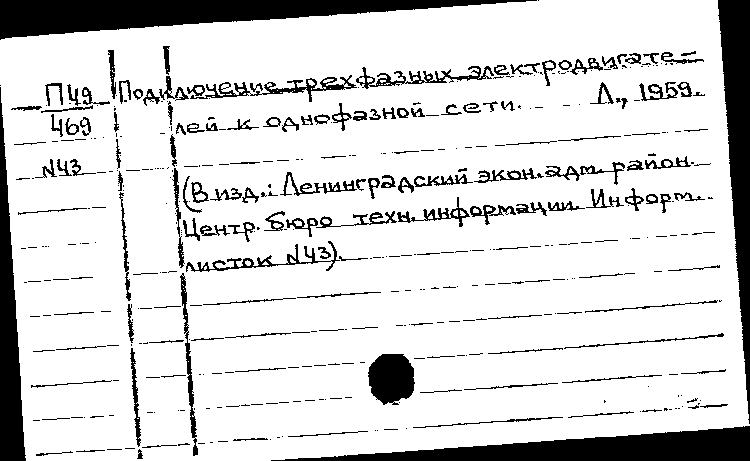 П49 Подключение трехфазных электродвигате-
469 лей к однофазной сети. Л., 1959.
N43
(В изд.: Ленинградский экон. адм. район.
Центр. бюро техн. информации. Информ.
листок N43).